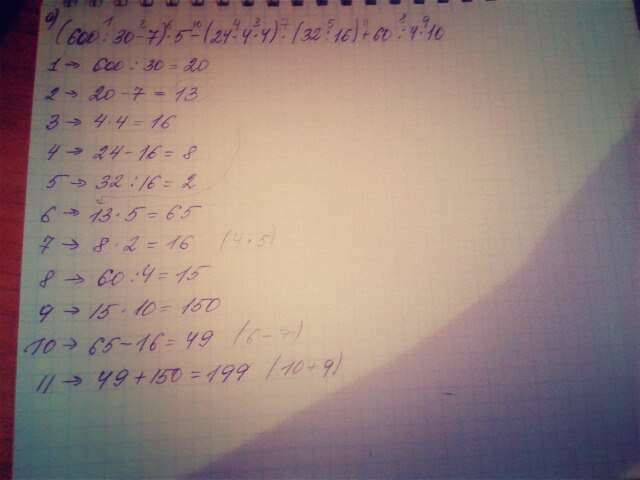 (600:30-7)·5-(24-4·4)·(32:16)+60:4·10
1 → 600:30=20
2 → 20-7=13
3 → 4·4=16
4 → 24-16=8
5 → 32:16=2
6 → 13·5=65
7 → 8·2=16 (4·5)
8 → 60:4=15
9 → 15·10=150
10 → 65-16=49 (6-7)
11 → 49+150=199 (10+9)